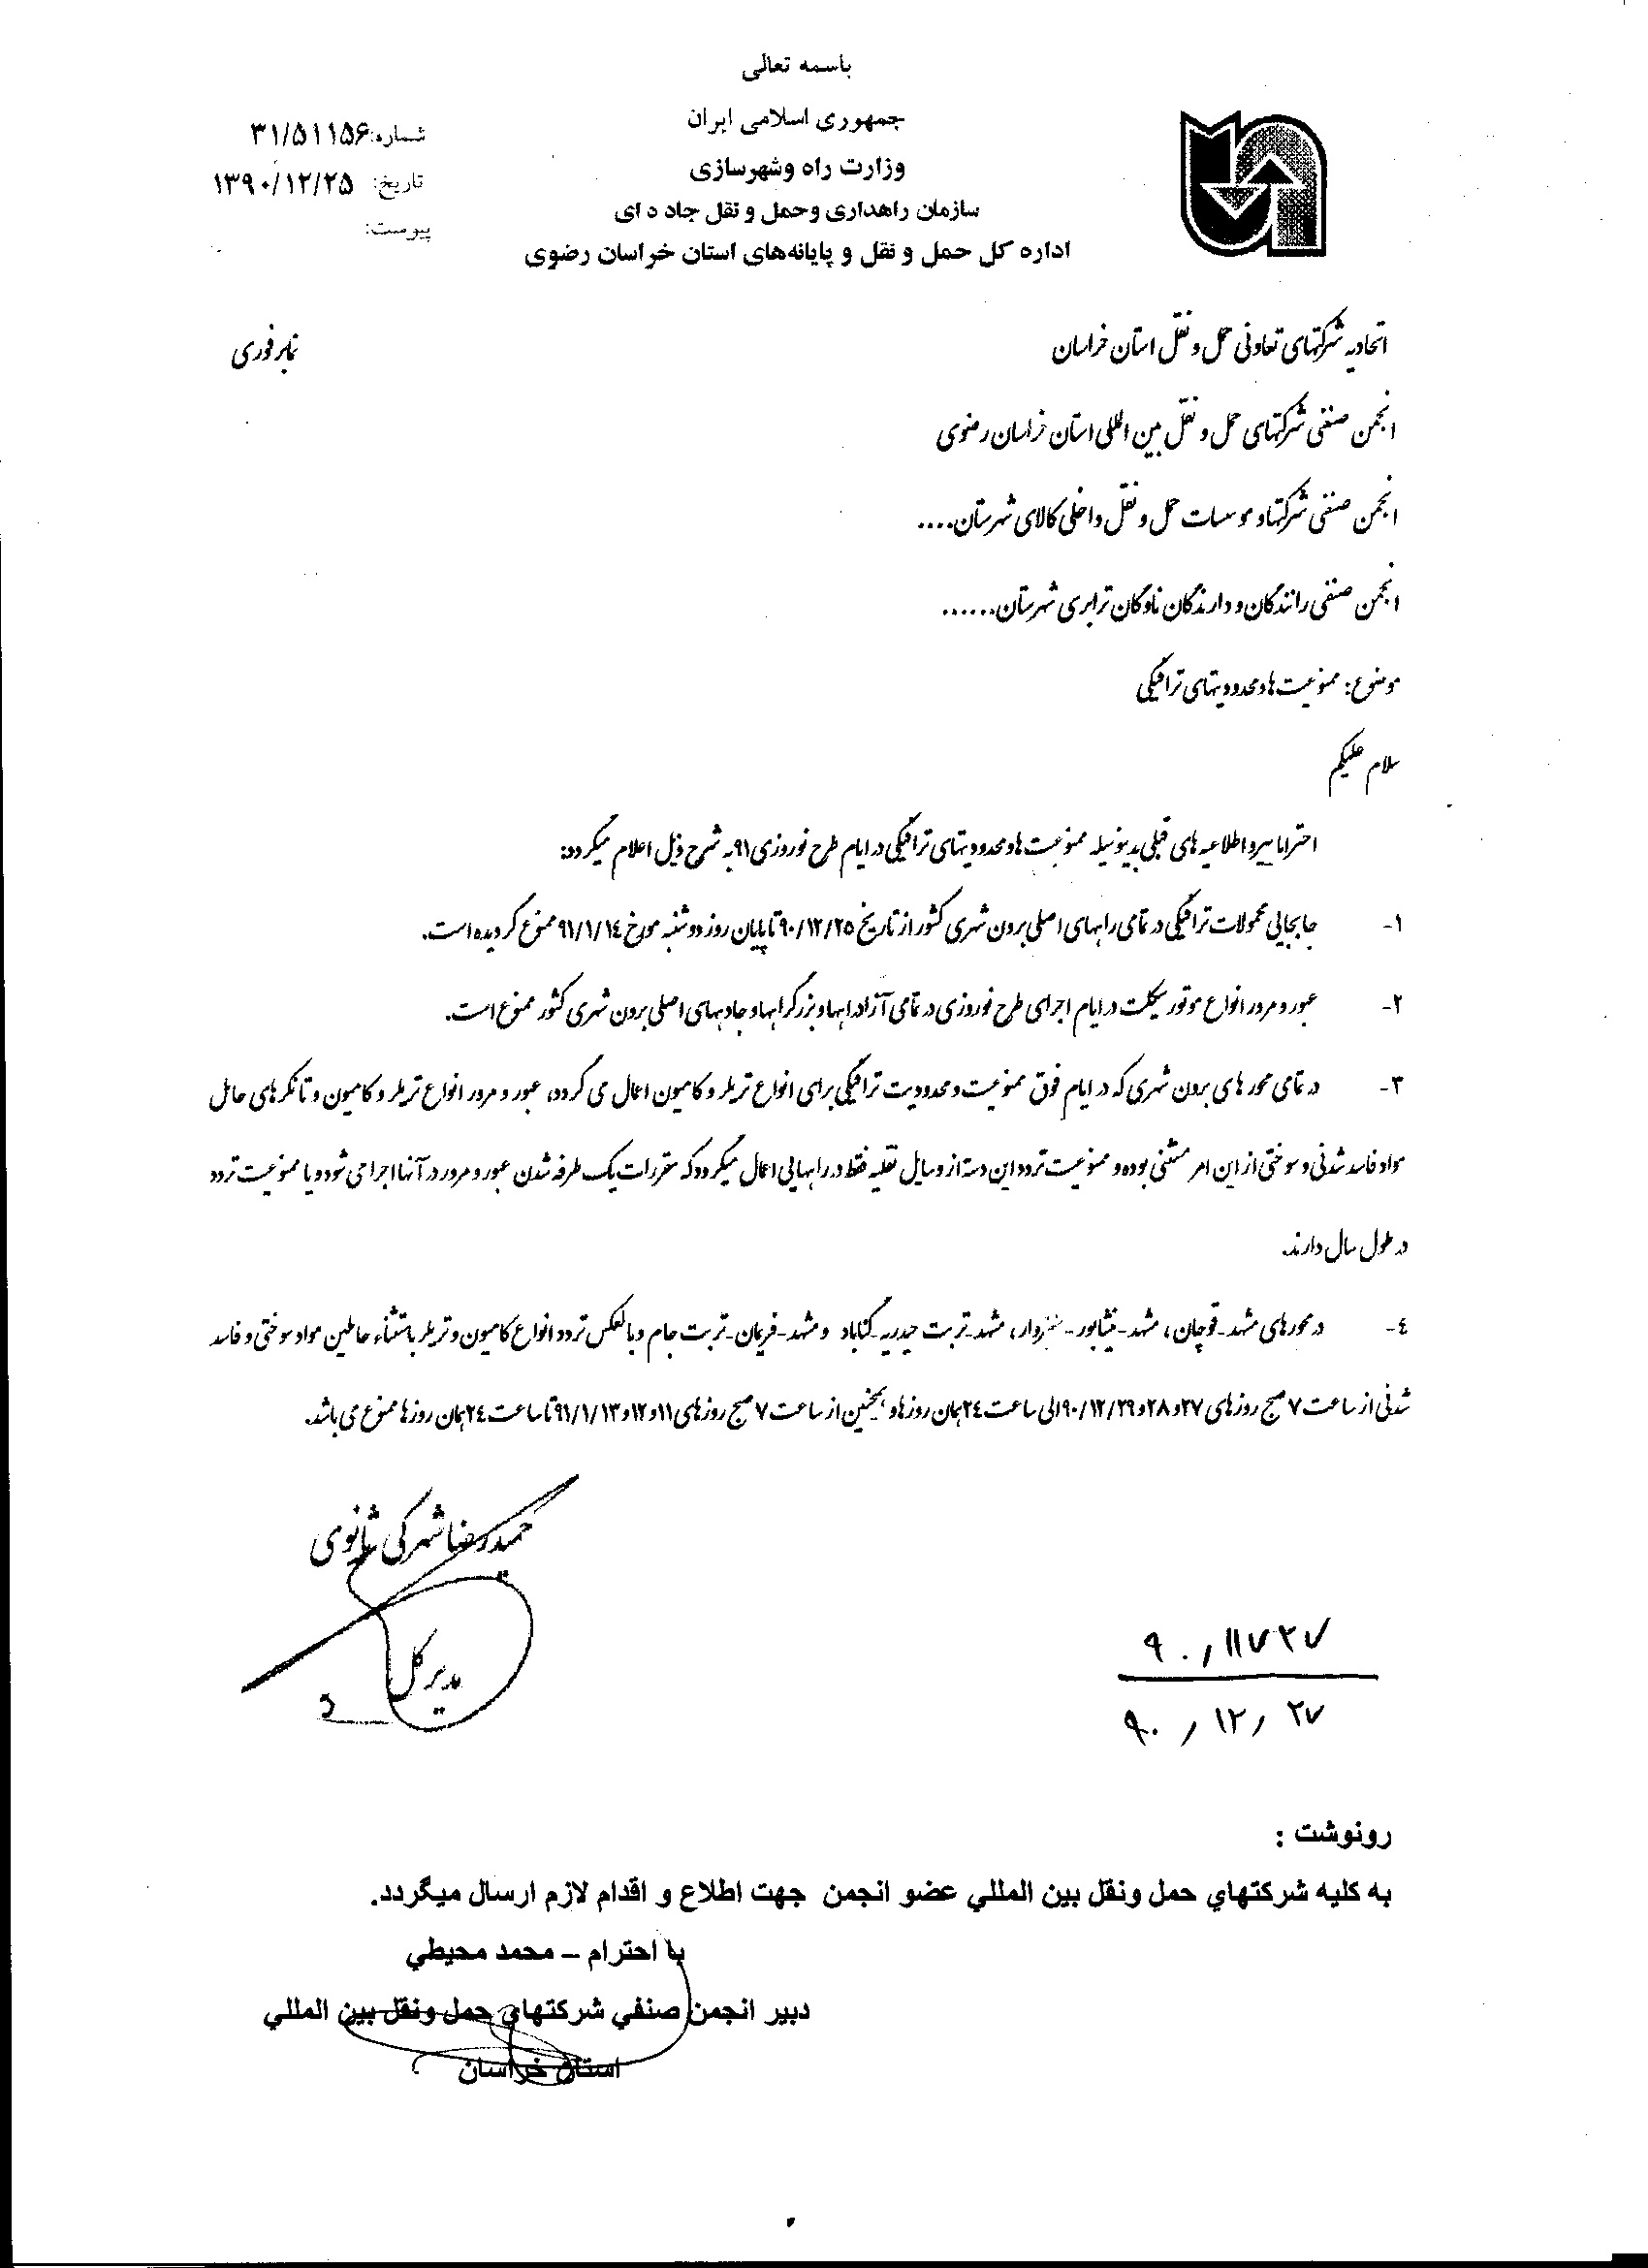 باسمه تعالی
جمهوری اسلامی ایران
وزارت راه وشهرسازی
سازمان راهداری وحمل و نقل جاده ای
اداره کل حمل و نقل و پایانه‌های استان خراسان رضوی
شماره: ۳۱/۵۱۱۵۶
تاریخ: ۱۳۹۰/۱۲/۲۵
پیوست:
نمابر فوری
اتحادیه شرکتهای تعاونی حمل و نقل استان خراسان
انجمن صنفی شرکتهای حمل و نقل بین المللی استان خراسان رضوی
انجمن صنفی شرکتها و موسسات حمل و نقل داخلی کالای شهرستان....
انجمن صنفی رانندگان و دارندگان ناوگان ترابری شهرستان......
موضوع: ممنوعیت ها و محدودیتهای ترافیکی
سلام علیکم
احتراما پیرو اطلاعیه های قبلی بدینوسیله ممنوعیت ها و محدودیتهای ترافیکی در ایام طرح نوروزی ۹۱ به شرح ذیل اعلام میگردد:
۱- جابجایی محمولات ترافیکی در تمامی راههای اصلی برون شهری کشور از تاریخ ۹۰/۱۲/۲۵ تا پایان روز دوشنبه مورخ ۹۱/۱/۱٤ ممنوع گردیده است.
۲- عبور و مرور انواع موتور سیکلت در ایام اجرای طرح نوروزی در تمامی آزادراهها و بزرگراهها و جادههای اصلی برون شهری کشور ممنوع است.
۳- در تمامی محور های برون شهری که در ایام فوق ممنوعیت و محدودیت ترافیکی برای انواع تریلر و کامیون اعمال می گردد، عبور و مرور انواع تریلر و کامیون و تانکرهای حامل
مواد فاسد شدنی و سوختی از این امر مستثنی بوده و ممنوعیت تردد این دسته از وسایل نقلیه فقط در راههایی اعمال میگردد که مقررات یک طرفه شدن عبور و مرور در آنها اجرا می شود و یا ممنوعیت تردد
در طول سال دارند.
٤- در محورهای مشهد-قوچان، مشهد-نیشابور-سبزوار، مشهد-تربت حیدریه-گناباد و مشهد-فریمان-تربت جام و بالعکس تردد انواع کامیون و تریلر باستثناء حاملین مواد سوختی و فاسد
شدنی از ساعت ۷ صبح روزهای ۲۷و۲۸و۹۰/۱۲/۲۹ الی ساعت ۲٤ همان روزها و همچنین از ساعت ۷ صبح روزهای ۱۱و۱۲و۹۱/۱/۱۳ تا ساعت ۲٤ همان روزها ممنوع می باشد.
حمیدرضا شهرکی ثانوی
مدیر کل
۹۰/۱۱۷۲۷
۹۰/۱۲/۲۷
رونوشت :
به کلیه شرکتهاي حمل ونقل بین المللي عضو انجمن جهت اطلاع و اقدام لازم ارسال میگردد.
با احترام – محمد محیطي
دبیر انجمن صنفي شرکتهاي حمل ونقل بین المللي
استان خراسان